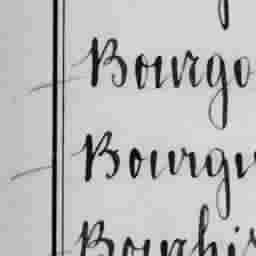 Bourgo
Bourgu
Bourhis